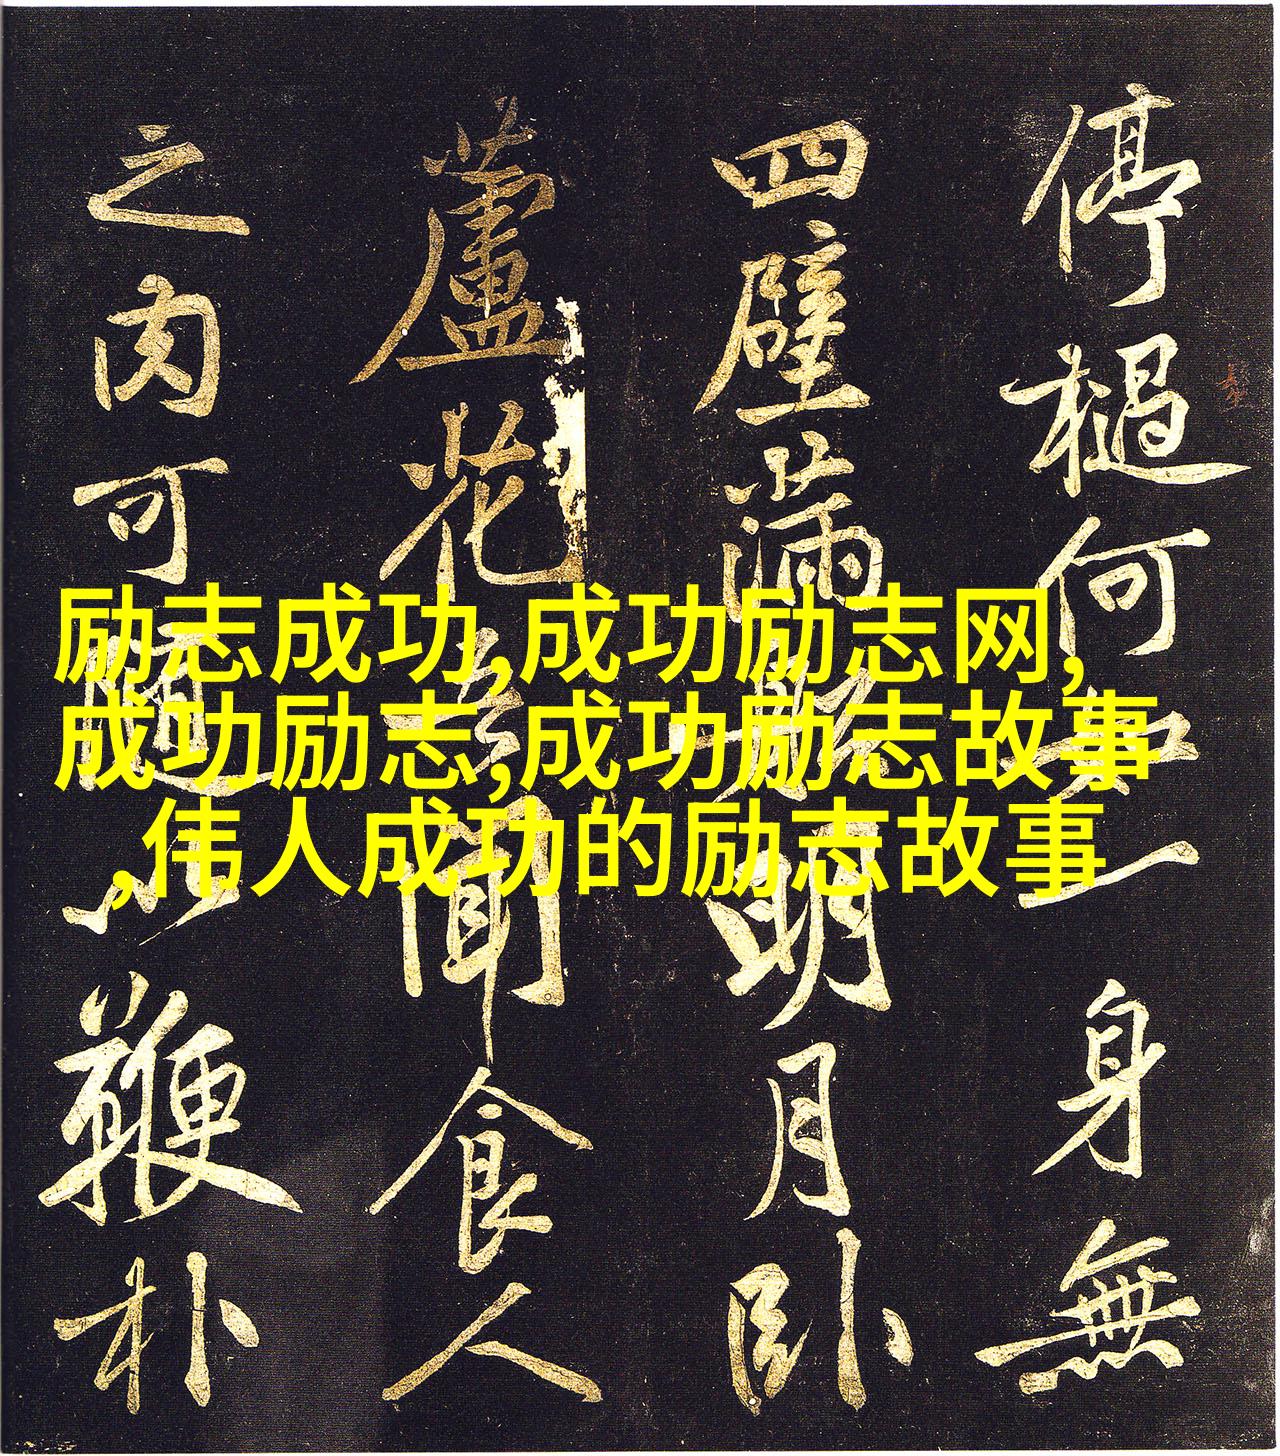 停檛何如一身無
四壁滿船明月卧
蘆花吾聞食人
之肉可隨以鞭朴
励志成功,成功励志网,
成功励志,成功励志故事
,伟人成功的励志故事